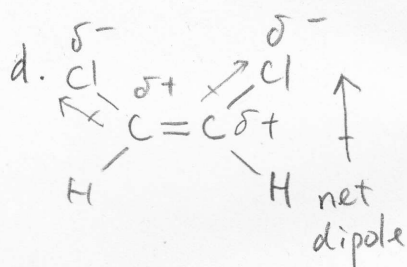 δ- δ-
d. Cl δ+ Cl
C=C δ+
H H net
dipole